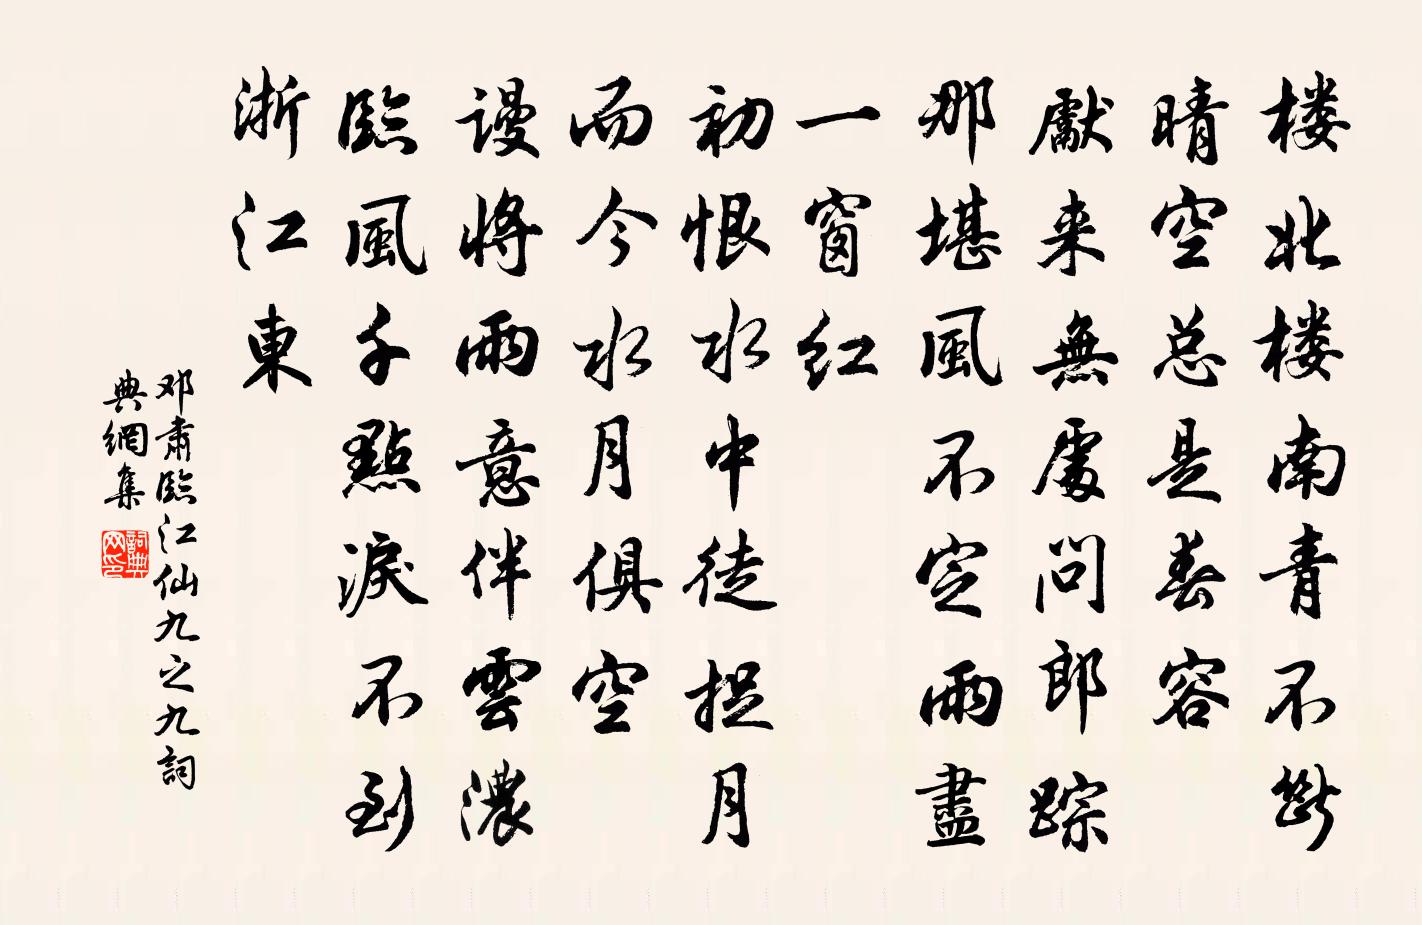 楼北楼南青不断
晴空总是春容
獻来無處問郎踪
那堪風不定雨盡
一窗红
初恨水中徒捉月
而今水月俱空
謾将雨意伴雲濃
臨風千點淚不到
浙江東
邓肅臨江仙九之九詞
典網集
詞典网印